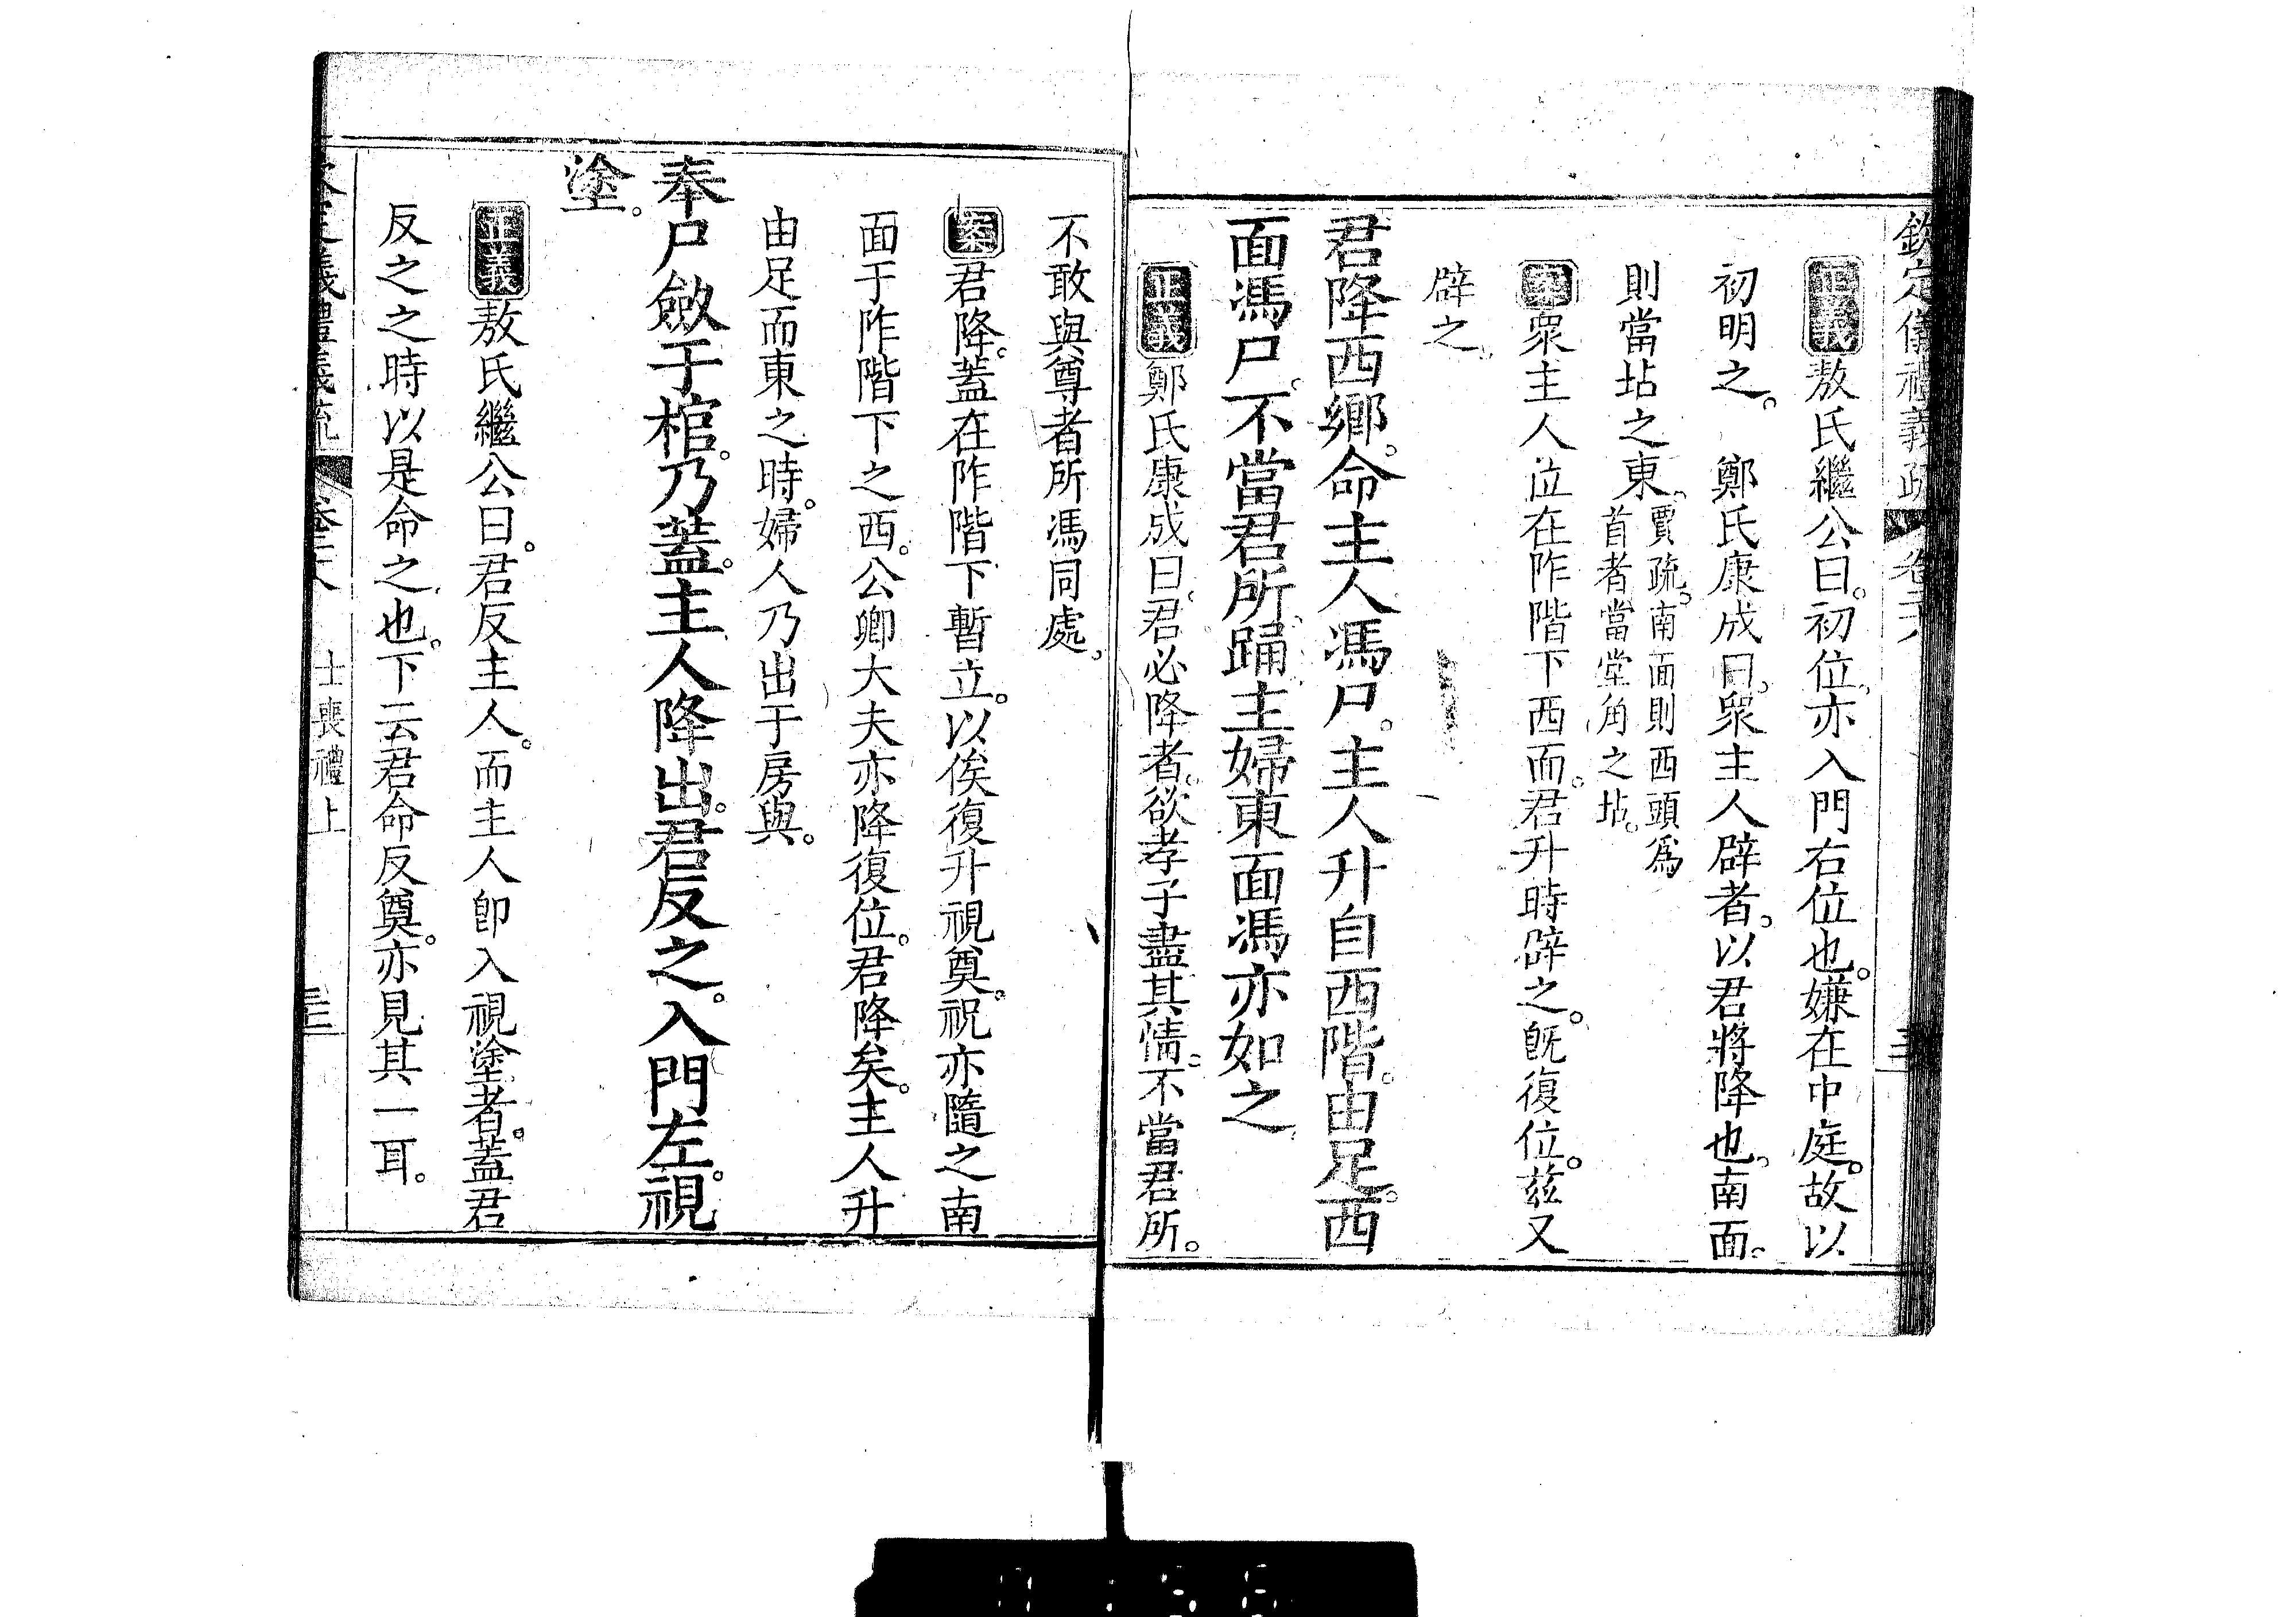 欽定儀禮義疏 卷二十八
正義敖氏繼公曰。初位。亦入門右位也。嫌在中庭。故以
初明之。 鄭氏康成曰。眾主人辟者。以君將降也。南面。
則當坫之東。賈疏。南面則西頭為
首者當堂角之坫。
案眾主人位在阼階下西面。君升時辟之。旣復位。茲又
辟之。
君降西鄉。命主人馮尸。主人升自西階。由足。西
面馮尸。不當君所踊主婦東面馮亦如之
正義鄭氏康成曰。君必降者。欲孝子盡其情。不當君所。
不敢與尊者所馮同處。
案君降。蓋在阼階下暫立。以俟復升視奠。祝亦隨之南
面于阼階下之西。公卿大夫亦降復位。君降矣。主人升
由足而東之時。婦人乃出于房與。
奉尸斂于棺。乃蓋。主人降出。君反之。入門左。視
塗。
正義敖氏繼公曰。君反主人。而主人卽入視塗者。蓋君
反之之時以是命之也。下云君命反奠。亦見其一耳。
士喪禮上